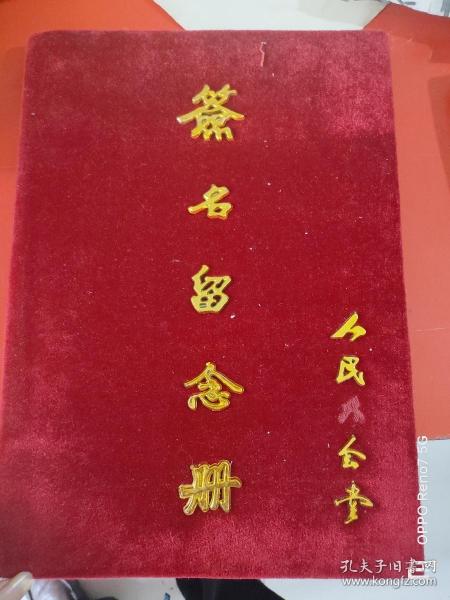 簽名留念册
人民大会堂
OPPO Reno7 5G
孔夫子旧书网
www.kongfz.com